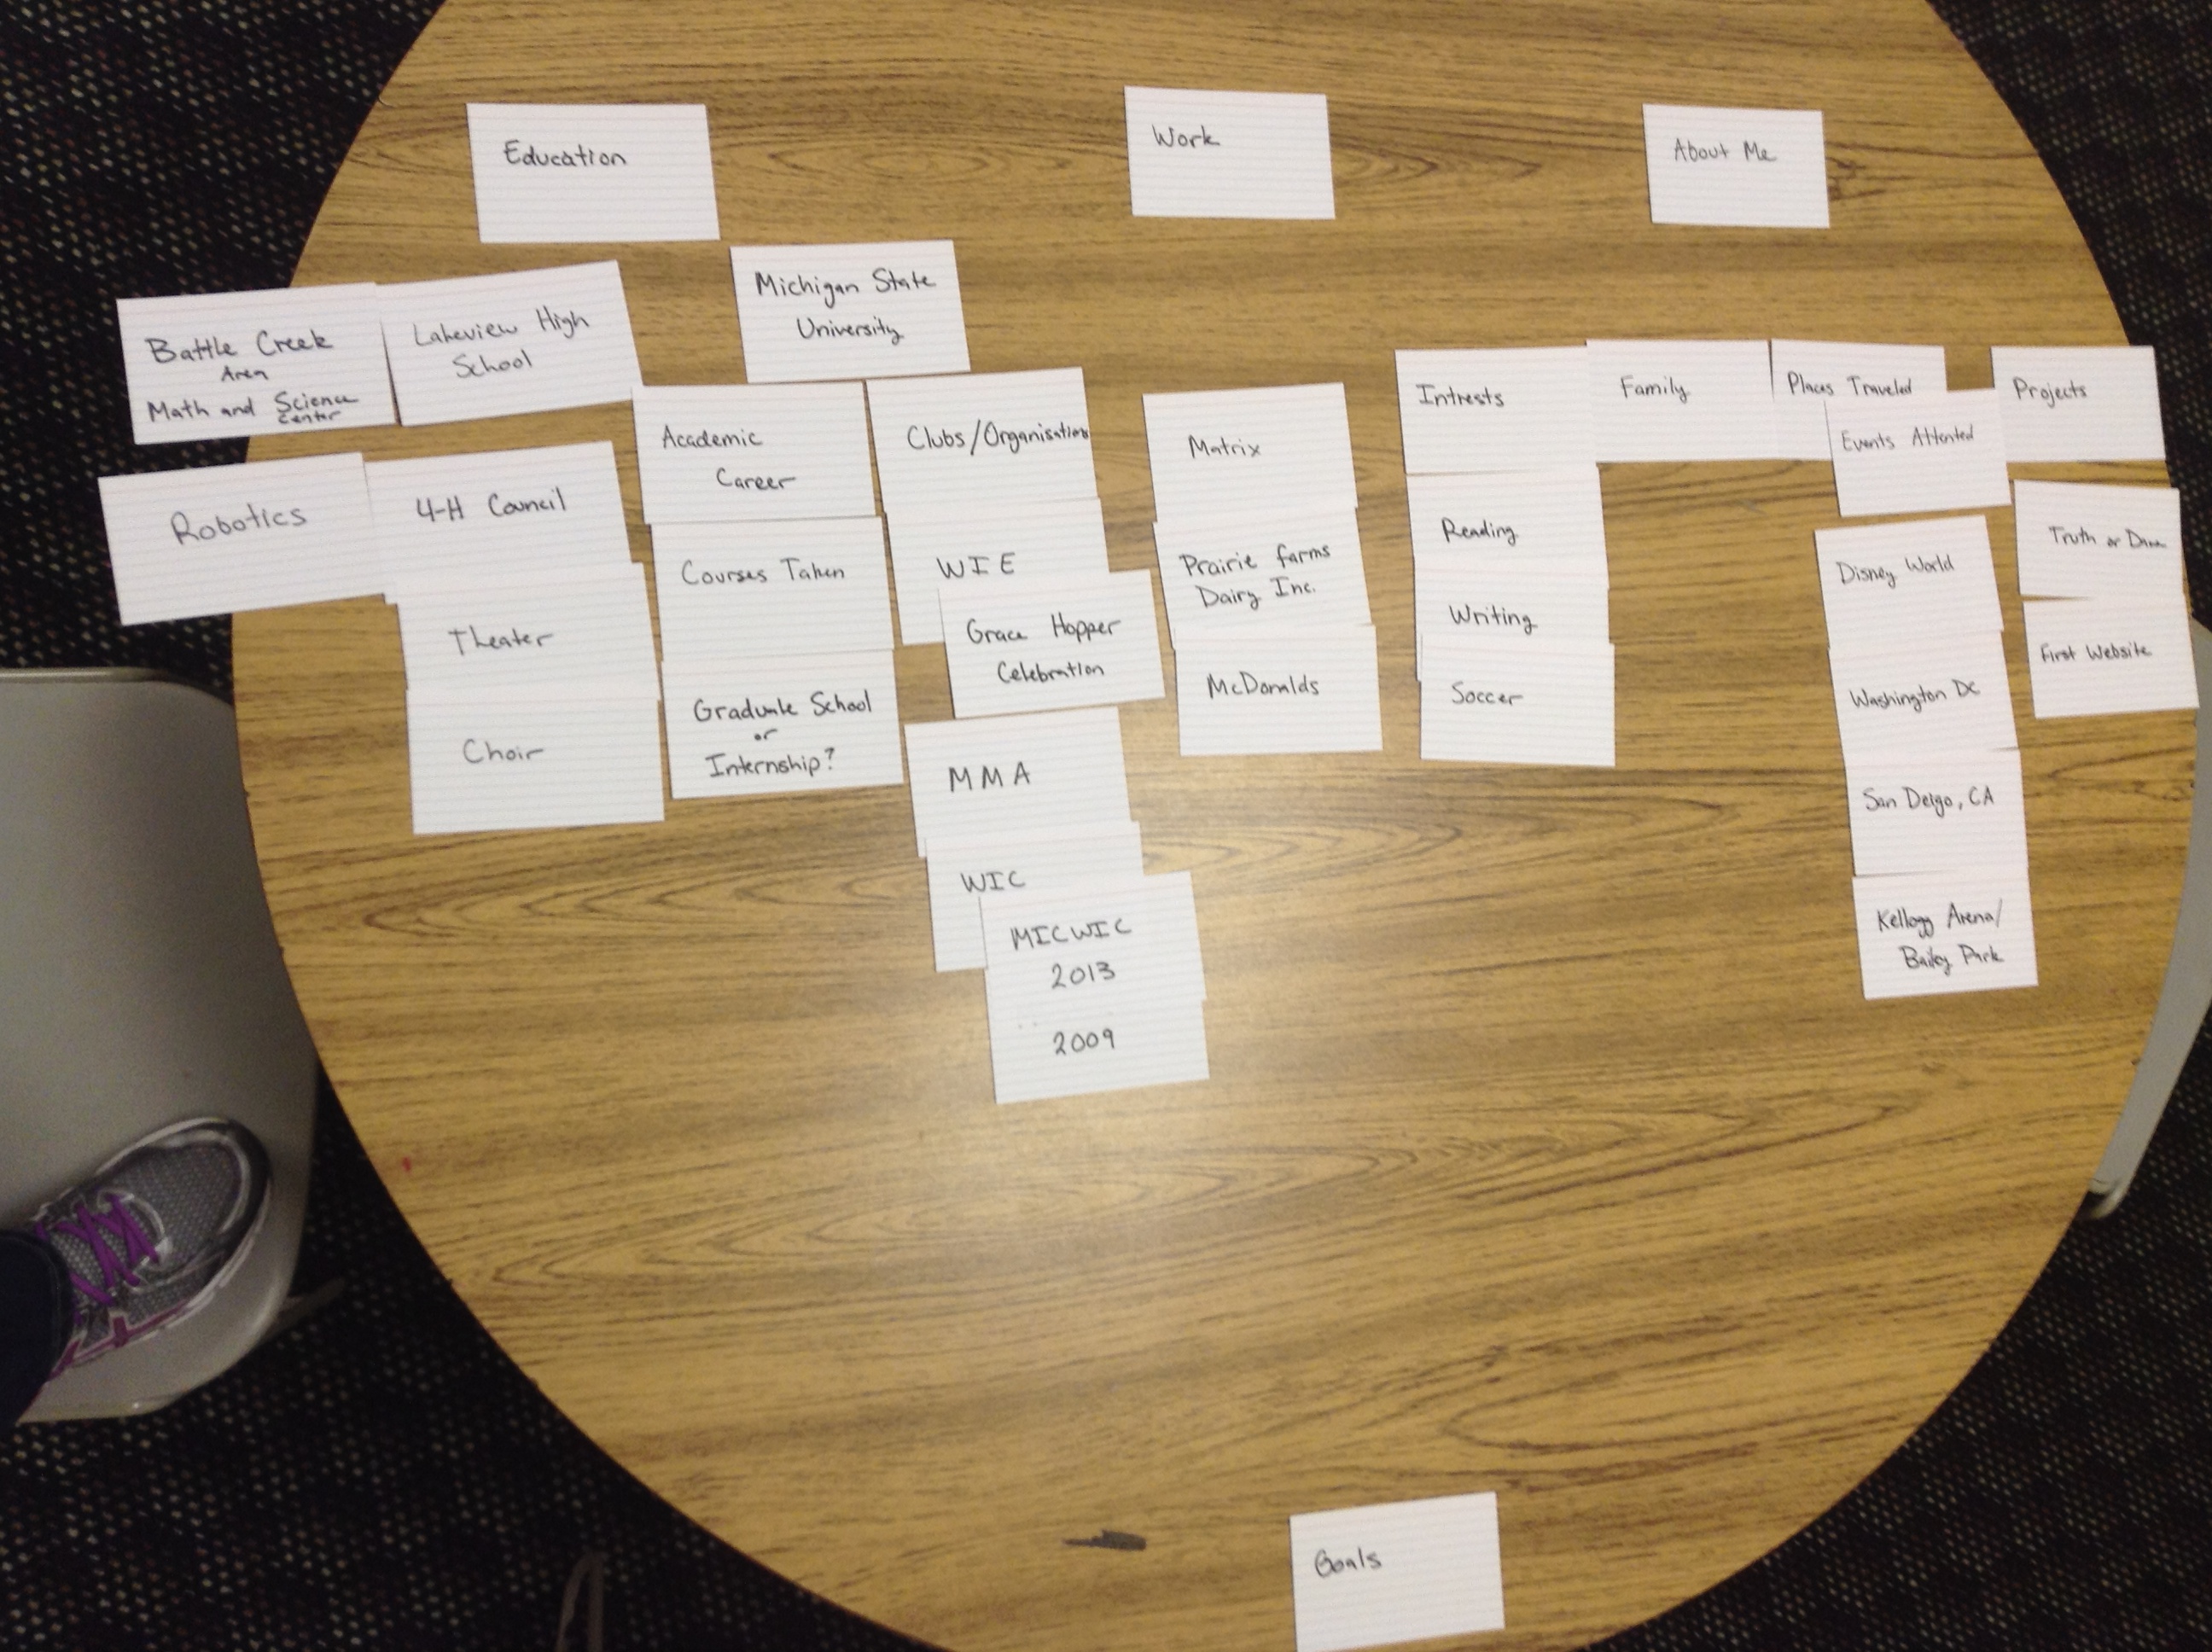 Education
Work
About Me
Michigan State
University
Battle Creek
Area
Math and Science
Center
Lakeview High
School
Robotics
4-H Council
Theater
Choir
Academic
Career
Courses Taken
Graduate School
or
Internship?
Clubs/Organisations
WIE
Grace Hopper
Celebration
MMA
WIC
MICWIC
2013
2009
Matrix
Prairie farms
Dairy Inc.
McDonalds
Intrests
Reading
Writing
Soccer
Family
Places Traveled
Events Attented
Disney World
Washington DC
San Deigo, CA
Kellogg Arena/
Bailey Park
Projects
Truth or Dare
First Website
Goals